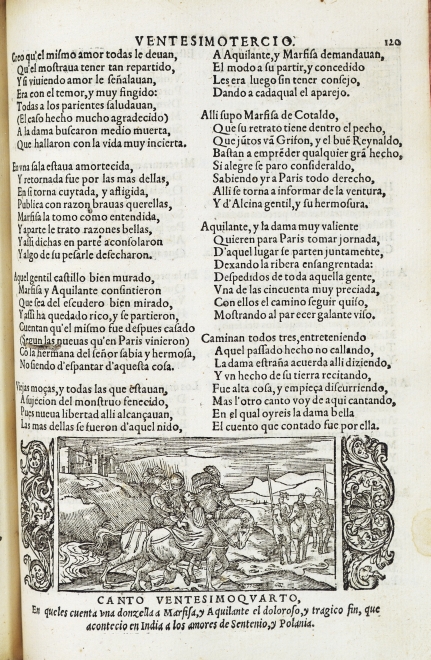 VENTESIMOTERCIO.
120
Creo qu'el mismo amor todas le deuan,
Qu'el mostraua tener tan repartido,
Y si viuiendo amor le señalauan,
Era con el temor, y muy fingido:
Todas a los parientes saludauan,
(El caso hecho mucho agradecido)
A la dama buscaron medio muerta,
Que hallaron con la vida muy incierta.
En vna sala estaua amortecida,
Y retornada fue por las mas dellas,
En si torna cuytada, y afligida,
Publica con razon brauas querellas,
Marfisa la tomo como entendida,
Y aparte le trato razones bellas,
Y assi dichas en parte aconsolaron
Y algo de su pesarle desecharon.
Aquel gentil castillo bien murado,
Marfisa y Aquilante consintieron
Que sea del escudero bien mirado,
Y assi ha quedado rico, y se partieron,
Cuentan qu'el mismo fue despues casado
(Segun las nueuas qu'en Paris vinieron)
Cō la hermana del señor sabia y hermosa,
No siendo d'espantar d'aquesta cosa.
Viejas moças, y todas las que estauan,
A sujecion del monstruo fenecido,
Pues nueua libertad alli alcançauan,
Las mas dellas se fueron d'aquel nido,
A Aquilante, y Marfisa demandauan,
El modo a su partir, y concedido
Les era luego sin tener consejo,
Dando a cada qual el aparejo.
Alli supo Marfisa de Cotaldo,
Que su retrato tiene dentro el pecho,
Que jūtos vā Grifon, y el buē Reynaldo,
Bastan a emprēder qualquier grā hecho,
Si alegre se paro consideraldo,
Sabiendo yr a Paris todo derecho,
Alli se torna a informar de la ventura,
Y d'Alcina gentil, y su hermosura.
Aquilante, y la dama muy valiente
Quieren para Paris tomar jornada,
D'aquel lugar se parten juntamente,
Dexando la ribera ensangrentada:
Despedidos de toda aquella gente,
Vna de las cincuenta muy preciada,
Con ellos el camino seguir quiso,
Mostrando al parecer galante viso.
Caminan todos tres, entreteniendo
Aquel passado hecho no callando,
La dama estraña acuerda alli diziendo,
Y vn hecho de su tierra recitando,
Fue alta cosa, y empieça discurriendo,
Mas l'otro canto voy de aqui cantando,
En el qual oyreis la dama bella
El cuento que contado fue por ella.
CANTO VENTESIMOQVARTO,
En queles cuenta vna donzella a Marfisa, y Aquilante el doloroso, y tragico fin, que
acontecio en India a los amores de Sentenio, y Polania.